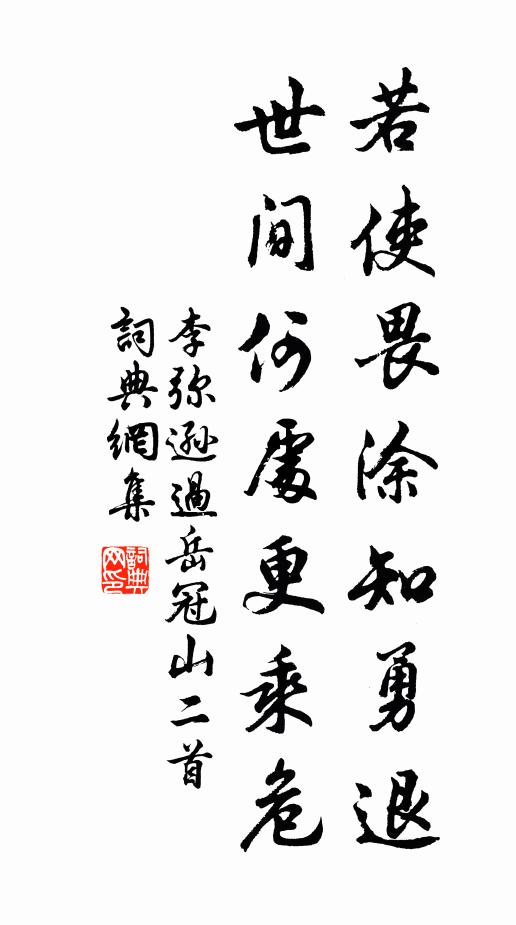 若使畏涂知勇退
世間何處更乘危
李弥遜過岳冠山二首
詞典網集
詞典網印